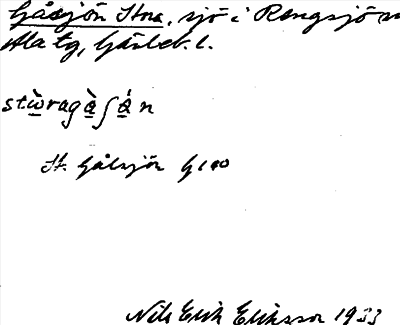 Gåsjön Stora, sjö i Rengsjö sn
Ala tg, Gävleb. l.
stẁragàʃán
St. Gåsjön G 100
Nils Erik Eriksson 1933